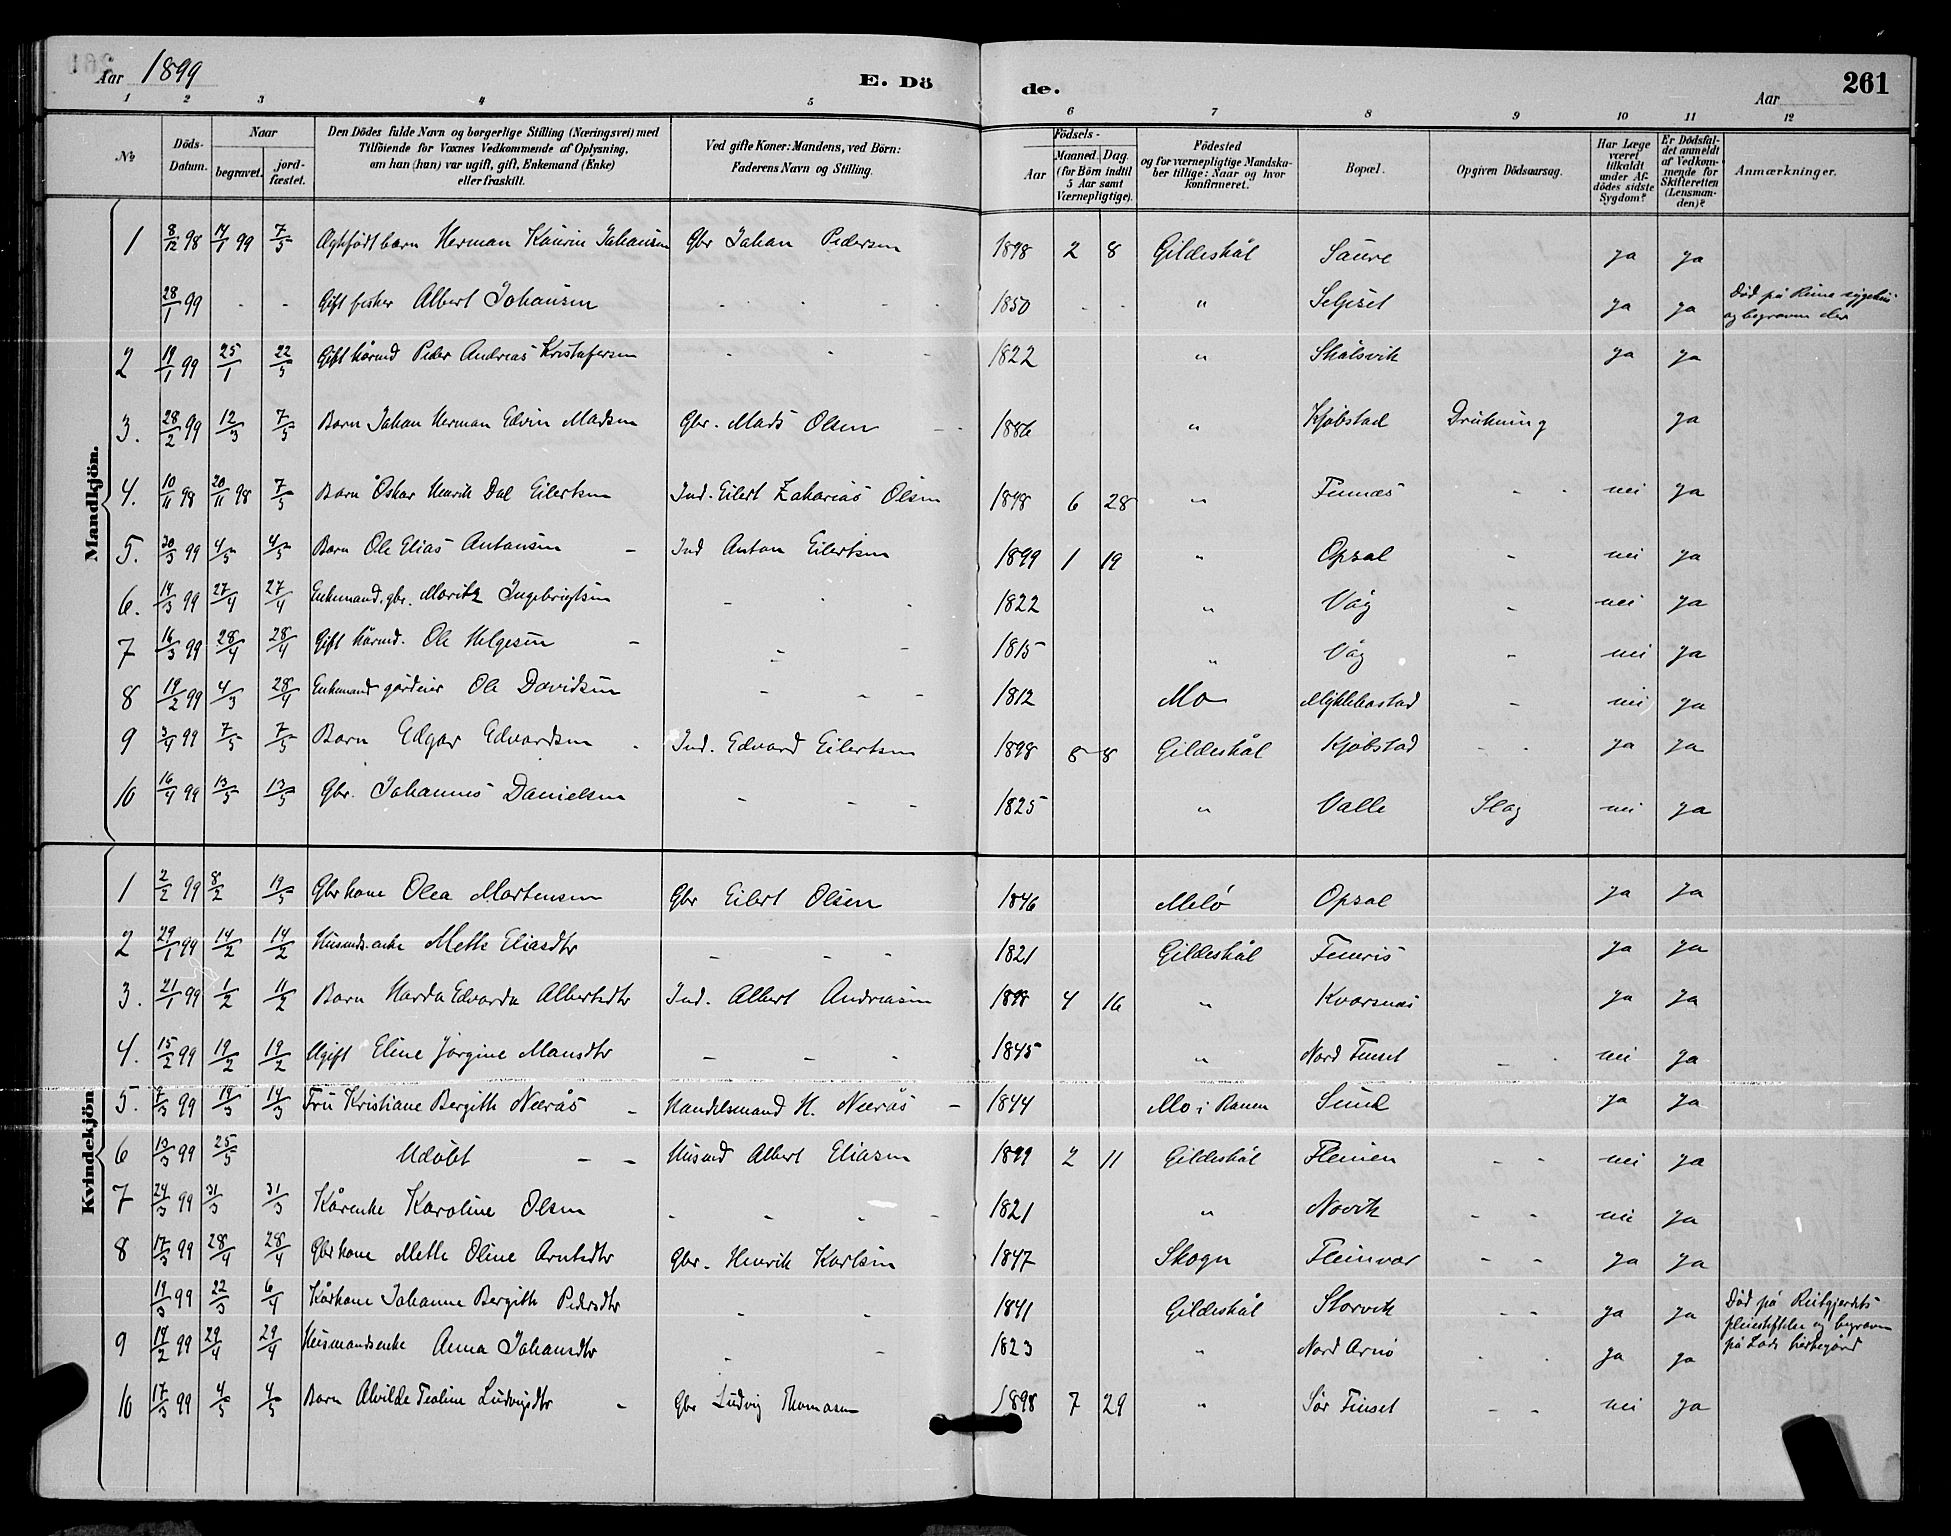 Aar 1899
E. Dö
de.
Aar
261
1 2 3 4 5 6 7 8 9 10 11 12
No
Döds-Datum.
Naar
begravet.
jord-fæstet.
Den Dödes fulde Navn og borgerlige Stilling (Næringsvei) med
Tilföiende for Voxnes Vedkommende af Oplysning,
om han (hun) var ugift, gift, Enkemand (Enke)
eller fraskilt.
Ved gifte Koner: Mandens, ved Börn:
Faderens Navn og Stilling.
Födsels-
Aar
Maaned. Dag.
(for Börn indtil
5 Aar samt
Værnepligtige).
Födested
og for værnepligtige Mandska-
ber tillige: Naar og hvor
konfirmeret.
Bopæl.
Opgiven Dödsaarsag.
Har Læge
været
tilkaldt
under Af-
dödes sidste
Sygdom?
Er Dödsfal-
det anmeldt
af Vedkom-
mende for
Skifteretten
(Lensman-
den)?
Anmærkninger.
Mandkjön.
1 8/12 98 14/1 99 7/5 Ægtefødt barn Herman Kaurin Johansen Gbr Johan Pedersen 1898 2 8 Gildeskål Saure ja ja
28/1 99 - - Gift fisker Albert Johansen - - - 1850 - - " Selset ja ja Død på Reine sygehus
og begraven der
2 19/1 99 25/1 22/5 Gift kårmd Peder Andreas Kristofersen - - - 1822 " Skålsvik ja ja
3. 28/2 99 12/3 7/5 Barn Johan Herman Edvin Madsen Gbr. Mads Olsen 1886 " Kjøbstad Drukning ja
4. 10/11 98 20/11 98 7/5 Barn Oskar Henrik Dal Eilertsen Ind. Eilert Zakarias Olsen 1898 6 28 " Finnæs - - nei ja
5. 30/3 99 4/5 4/5 Barn Ole Elias Antonsen - Ind Anton Eilertsen 1899 1 19 " Opsal - nei ja
6. 14/3 99 27/4 27/4 Enkemand. gbr. Moritz Ingebrigtsen - - - 1822 " Våg - nei ja
7 16/3 99 28/4 28/4 Gift kårmd. Ole Helgesen - - - 1815 " Våg - nei ja
8 19/2 99 4/3 28/4 Enkemand gårdeier Ole Davidsen - - - 1812 Mo Myklebostad - nei ja
9 3/4 99 7/5 7/5 Barn Edgar Edvardsen - Ind. Edvard Eilertsen 1898 8 8 Gildeskål Kjøbstad - - ja ja
10 16/4 99 13/5 13/5 Gbr. Johannes Danielsen - - - 1825 " Valle Slag nei ja
Kvindekjön
1 2/2 99 8/2 19/5 Gbr kone Olea Mortensen Gbr Eilert Olsen 1846 Melø Opsal ja ja
2 29/1 99 14/2 14/2 Husmds. enke Mette Eliasdtr - - - 1821 Gildeskål ja ja
3. 21/1 99 1/2 11/2 Barn Harda Edvarda Albertsdtr Ind. Albert Andreasen 1898 4 16 " Kvarsnæs ja ja
4. 15/2 99 19/2 19/2 Ugift Eline Jørgine Mansdtr - - - 1845 " Nord Finset - - nei ja
5. 7/3 99 14/3 14/3 Fru Kristiane Bergith Neerås - Handelsmand H. Neerås - 1844 Mo i Ranen Sund ja ja
6 13/3 99 25/5 Udøbt - - Husmd Albert Eliasen 1899 2 11 Gildeskål Fleinen - - nei ja
7 24/3 99 31/3 31/3 Kårenke Karoline Olsen - - - - 1821 " Novik - - nei ja
8 17/3 99 28/4 28/4 Gbr kone Mette Oline Arntsdtr Gbr. Henrik Karlsen 1847 Skogn Fleinvær - - ja ja
19/3 99 22/3 6/4 Kårkone Johanne Bergith Pedersdtr - - 1841 Gildeskål Storvik - - ja ja Død på Reitgjerdets
pleiestiftelse og begraven
på Lade kirkegård
9 14/2 99 29/4 29/4 Husmandsenke Anna Johansdtr - - 1823 " Nord Arnø - - ja ja
10 17/3 99 4/5 4/5 Barn Alvilde Tealine Ludvigsdtr - Gbr Ludvig Thomasen 1898 7 29 " Sør Finset - - nei ja